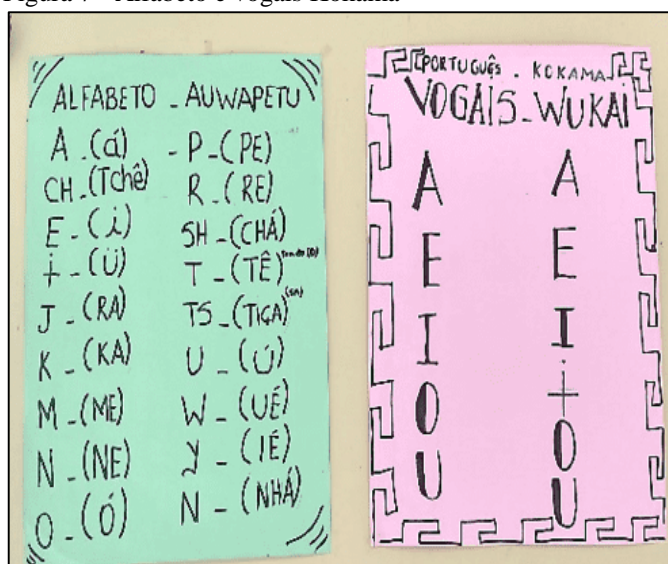 Figura 7 – Alfabeto e vogais Kokama
ALFABETO - AUWAPETU
A - (á)
CH - (Tchê)
E - (i)
ɨ - (Ü)
J - (RA)
K - (KA)
M - (ME)
N - (NE)
O - (Ó)
- P - (PE)
R - (RE)
SH - (CHÁ)
T - (TÊ)
TS - (TIÇA)
U - (Ú)
W - (UÉ)
Y - (IÉ)
N - (NHÁ)
PORTUGUÊS - KOKAMA
VOGAIS - WUKAI
A A
E E
I I
O ɨ
U O
U